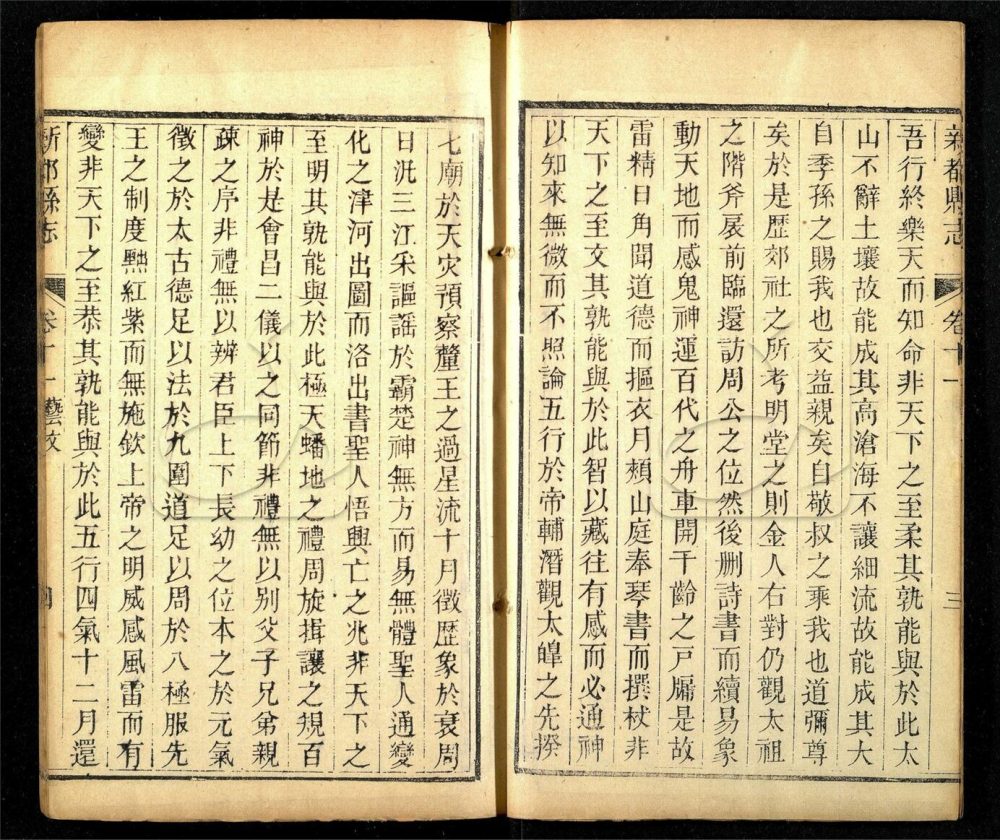 新都縣志
卷十一
三
吾行終樂天而知命非天下之至柔其孰能與於此太
山不辭土壤故能成其高滄海不讓細流故能成其大
自季孫之賜我也交益親矣自敬叔之乘我也道彌尊
矣於是歷郊社之所考明堂之則金人右對仍觀太祖
之階斧扆前臨還訪周公之位然後删詩書而續易象
動天地而感鬼神運百代之舟車開千齡之戸牖是故
雷精日角聞道德而摳衣月頰山庭奉琴書而撰杖非
天下之至文其孰能與於此智以藏往有感而必通神
以知來無微而不照論五行於帝輔潛觀太皥之先揆
七廟於天灾預察釐王之過星流十月徵歷象於衰周
日汎三江采謳謠於霸楚神無方而易無體聖人通變
化之津河出圖而洛出書聖人悟興亡之兆非天下之
至明其孰能與於此極天蟠地之禮周旋揖讓之規百
神於是會昌二儀以之同節非禮無以別父子兄弟親
疎之序非禮無以辨君臣上下長幼之位本之於元氣
徵之於太古德足以法於九圍道足以周於八極服先
王之制度黜紅紫而無施欽上帝之明威感風雷而有
變非天下之至恭其孰能與於此五行四氣十二月還
新都縣志
卷十一藝文
四